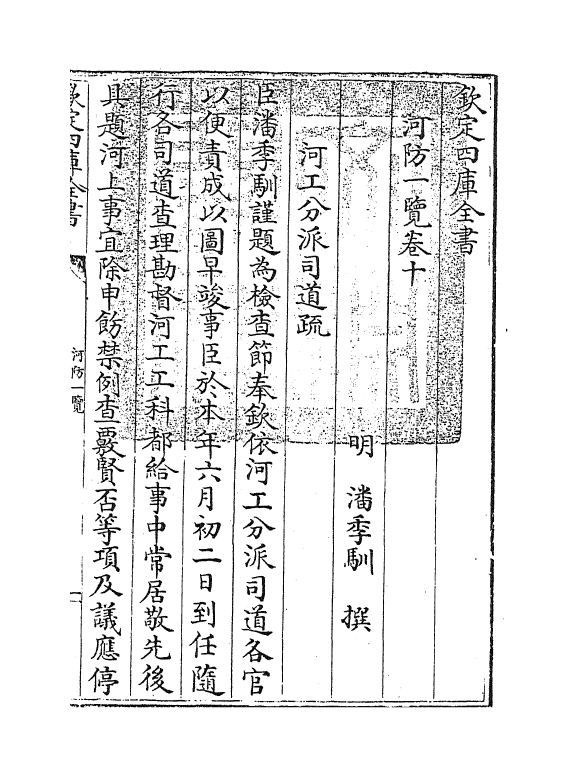 欽定四庫全書
河防一覽卷十
明 潘季馴 撰
河工分派司道疏
臣潘季馴謹題為檢查節奉欽依河工分派司道各官
以便責成以圖早竣事臣於本年六月初二日到任隨
行各司道查理勘督河工工科都給事中常居敬先後
具題河上事宜除申飭禁例查覈賢否等項及議應停
欽定四庫全書
河防一覽
一